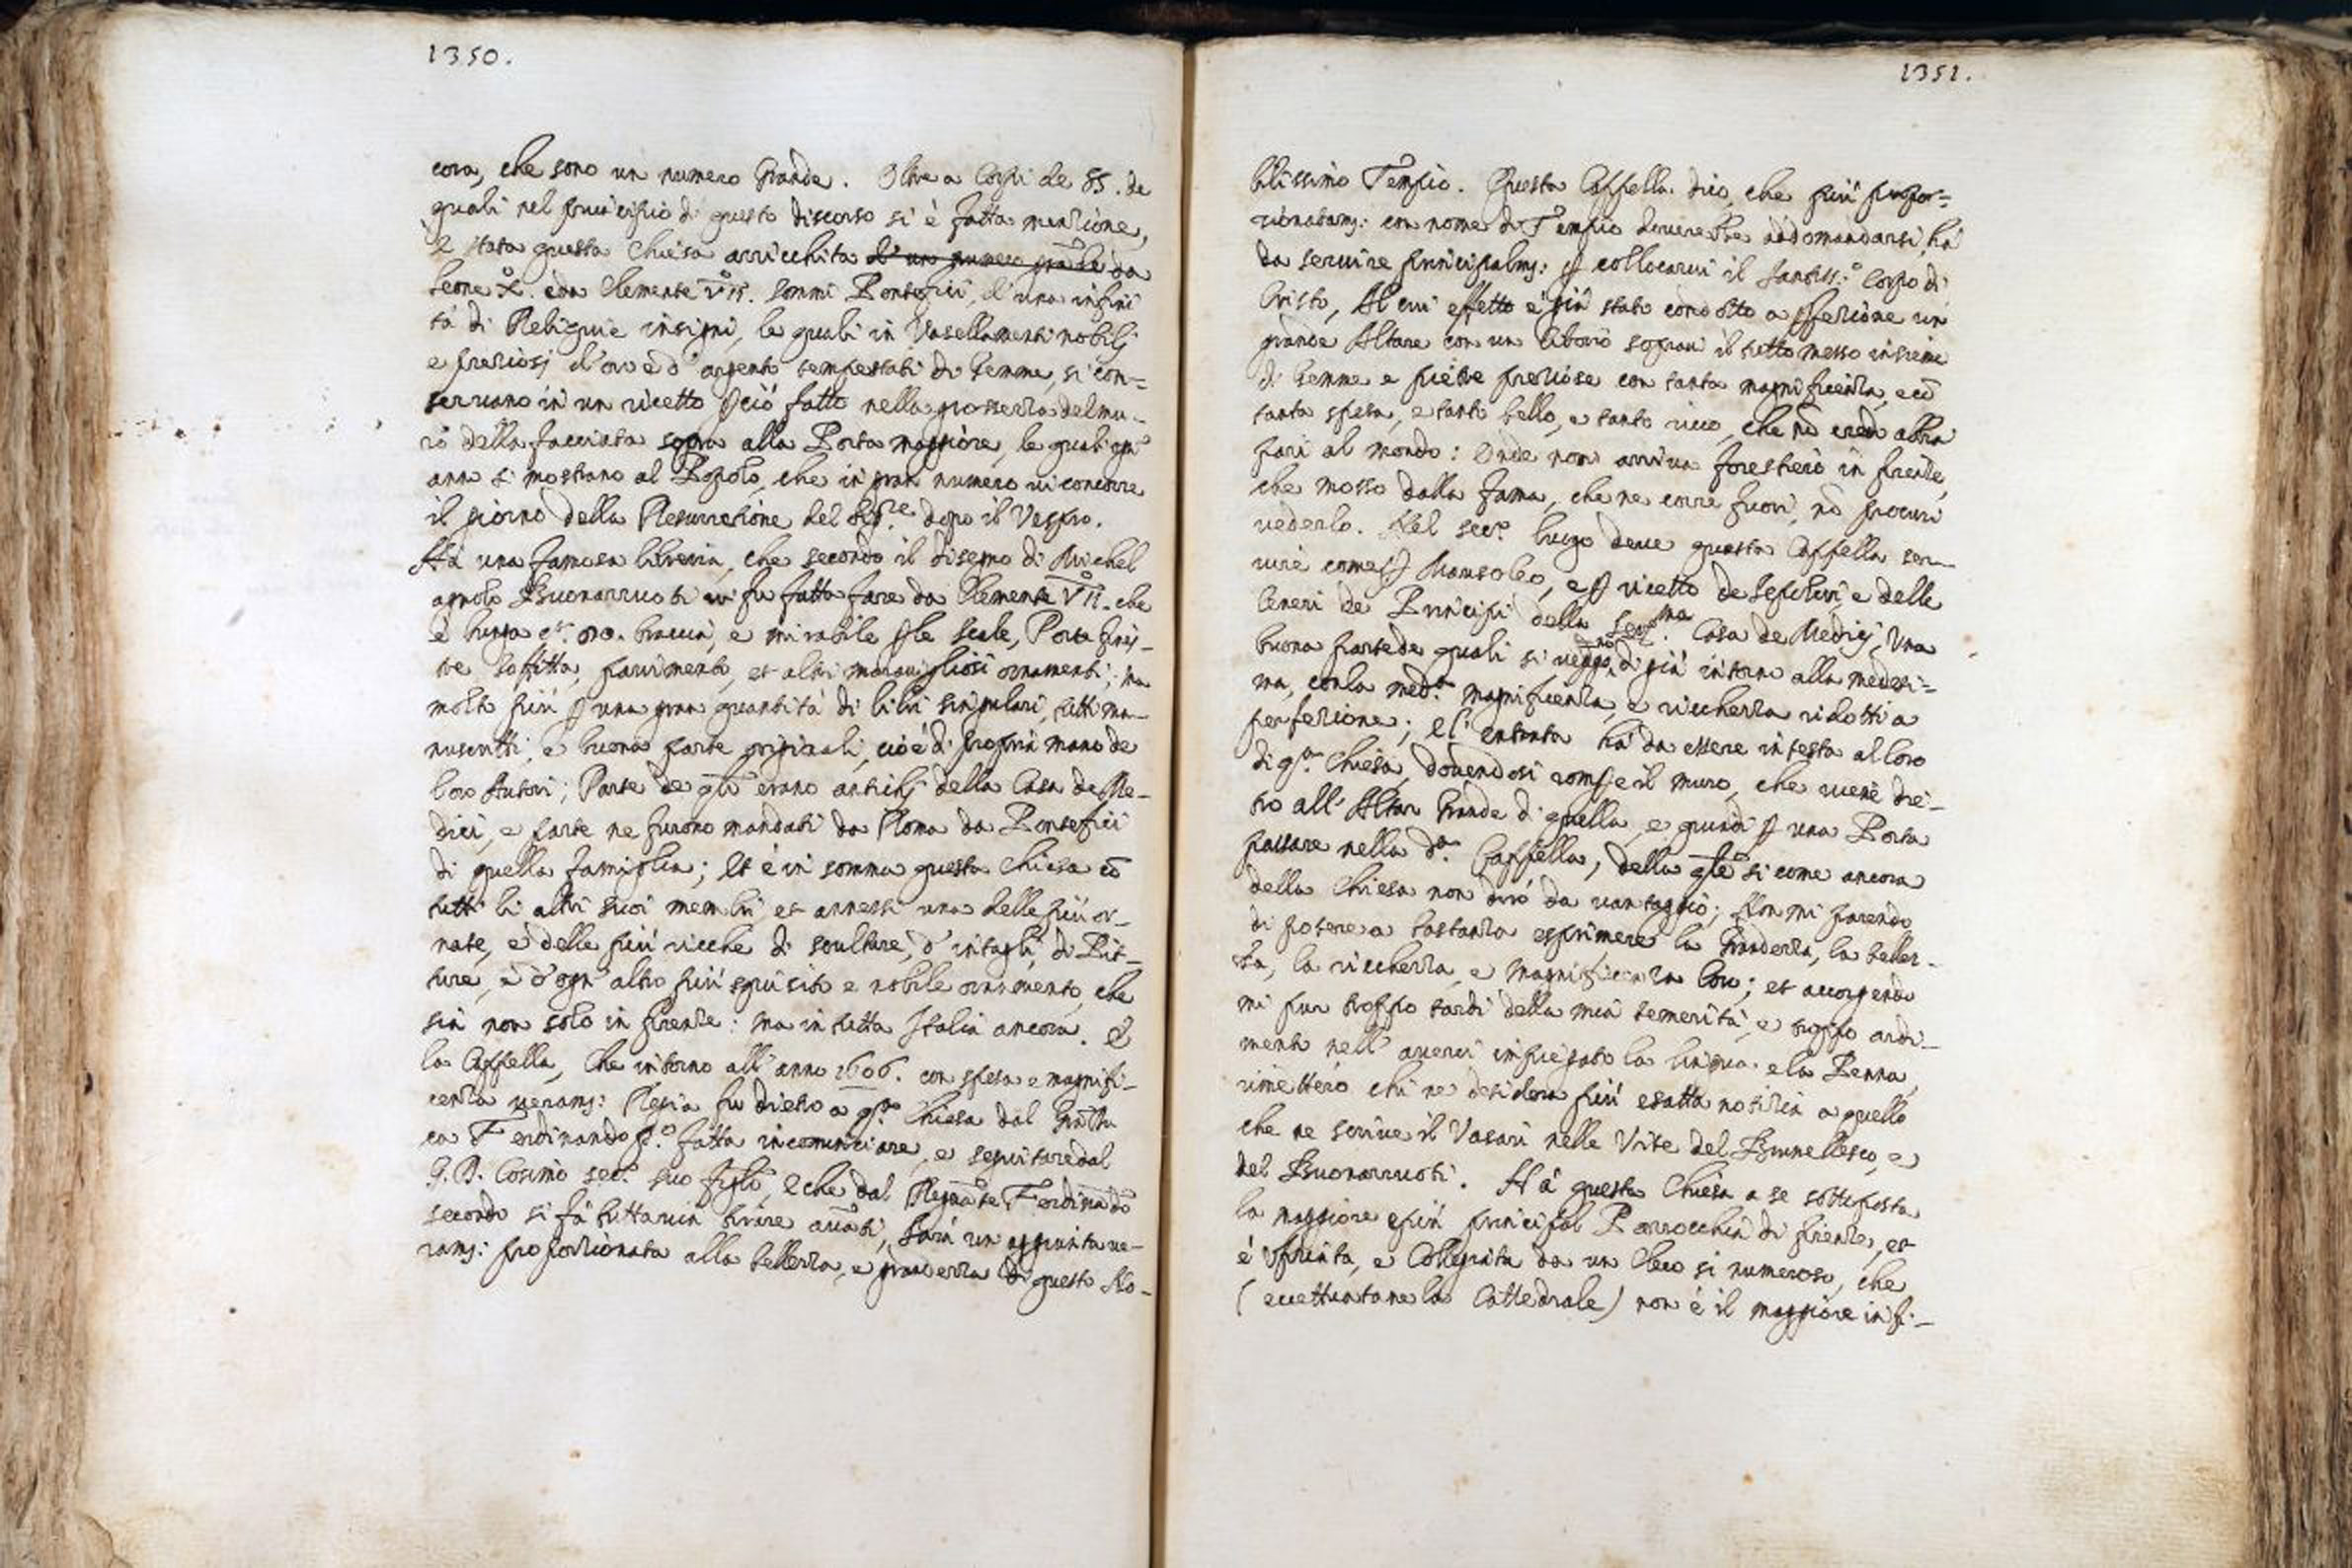 1350.
cora, che sono un numero Grande. Oltre a Corpi de SS. de
quali nel principio di questo discorso si è fatta menzione,
È stata questa Chiesa arricchita d'un numero grāde da
Leone X.º e da Clemente VII.º sommi Pontefici, d'una infini
tà di Reliquie insigni, le quali in Vasellamenti nobilj
e preziosj d'oro e d'argento tempestati di Gemme, si con=
servano in un ricetto ꝑ ciò fatto nella grossezza del mu-
ro della facciata sopra alla Porta maggiore, le quali ogn'
anno si mostrano al Popolo, che in gran numero vi concorre
il giorno della Resurrezione del Sig.re dopo il Vespro.
Hà una famosa libreria, che secondo il disegno di Michel
agnolo Buonarruoti vi fu fatta fare da Clemente VII.º che
è lunga braccia, e mirabile ꝑ le scale, Porta fines-
tre soffitta, pavimento, et altri maravigliosi ornamenti; ma
molto più ꝑ una gran quantità di libri singulari, tutti ma-
nuscritti, e buona parte originali, cioè di propria mano de
loro Autori; Parte de qli erano antichj della Casa de Me-
dici, e parte ne furono mandati da Roma da Pontefici
di quella famiglia; Et è in somma questa Chiesa cō
tutti li altri suoi membri, et annessi una delle più or-
nate, e delle più ricche di sculture, d'intagli, di Pit-
ture, e d'ogn'altro più squisito e nobile ornamento, che
sia non solo in firenze: ma in tutta Italia ancora. E
la Cappella, che intorno all'anno 1606. con spesa e magnifi-
cenza veramː Regia fu dietro a qsta Chiesa dal Grādu
ca Ferdinando p.º fatta incominciare, e seguitare dal
G. D. Cosimo sec.º suo figlo, e che dal Regnāte Ferdinādo
secondo si fà tuttavia tirare avāti, sarà un aggiunta ve-
ramː proporzionata alla bellezza, e grandezza di questo No-
1351.
bilissimo Tempio. Questa Cappella dico, che più propor=
zionatamː con nome di Tempio deverebbe addomandarsi, hà
da servire principalmː ꝑ collocarvi il Santiss.º Corpo di
Cristo, Al cui effetto è già stato condotto a ꝑfezione un
grande Altare con un Ciborio sopravi il tutto messo insieme
di Gemme e pietre preziose con tanta magnificenza, e cō
tanta spesa, e tanto bello, e tanto ricco, che nō credo abbia
pari al mondo: Onde non arriva forestiero in firenze,
che mosso dalla fama, che ne corre fuori, nō procuri
vederlo. Nel sec.º luogo deve questa Cappella ser-
vire come ꝑ Mausoleo, e ꝑ ricetto de sepolcri, e delle
Ceneri de Principi della Ser.ma Casa de Medicj, Una
buona parte de quali si veggono di già intorno alla medesi=
ma, con la med.a magnificenza, e ricchezza ridotti a
perfezione; e l'entrata hà da essere in testa al Coro
di q.sta Chiesa, dovendosi romꝑe il muro, che viene die-
tro all'Altar Grande di quella, e quindi ꝑ una Porta
passare nella d.a Cappella, della qle si come ancora
della Chiesa non dirò da vantaggio; Non mi parendo
di potere a bastanza esprimere la Grandezza, la bellez-
za, la ricchezza, e magnificenza loro; et accorgendo
mi pur troppo tardi della mia temerità, e troppo ardi-
mento nell'averci impiegato la lingua e la Penna,
rimettero chi ne desidera più esatta notizia a quello
che ne scrive il Vasari nelle Vite del Brunellesco, e
del Buonarruoti. Hà questa Chiesa a se sottoposta
la maggiore e più principal Parrocchia di firenze, et
è Ufiziata, e Collegiata da un Clero si numeroso, che
(eccettuatane la Cattedrale) non è il maggiore in fi-